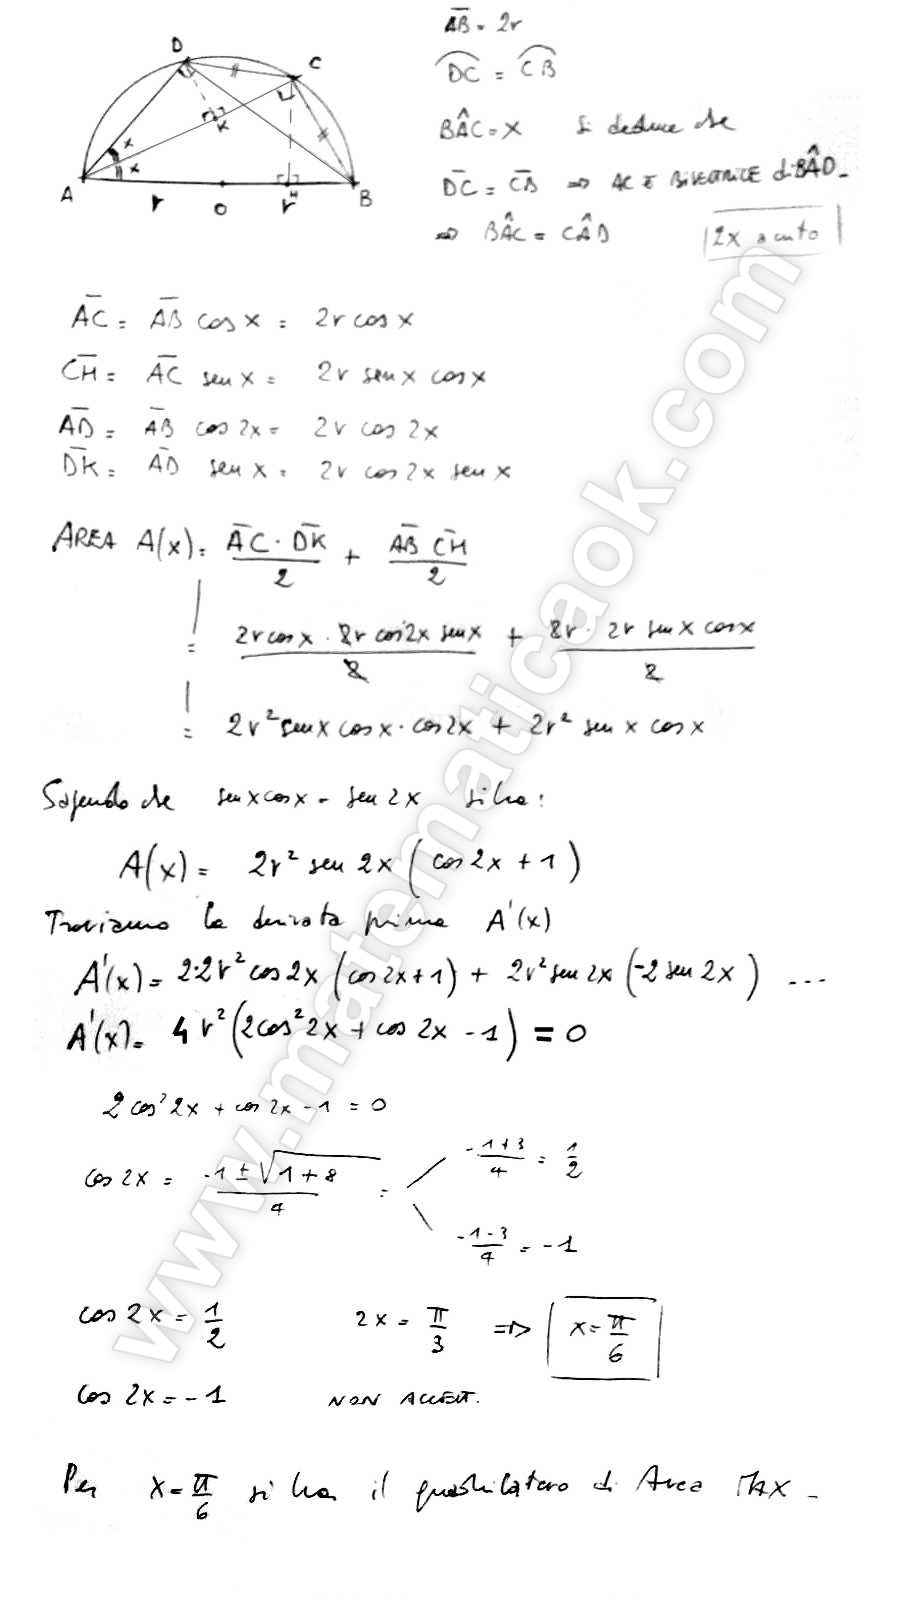 D
C
K
x
x
A
r
O
H
r
B
A̅B̅ = 2r
D͡C = C͡B
BÂC = x si deduce che
D̅C̅ = C̅B̅ ⇒ AC È BISETTRICE di BÂD -
⇒ BÂC = CÂD 2x acuto
A̅C̅ = A̅B̅ cos x = 2r cos x
C̅H̅ = A̅C̅ sen x = 2r sen x cos x
A̅D̅ = A̅B̅ cos 2x = 2r cos 2x
D̅K̅ = A̅D̅ sen x = 2r cos 2x sen x
AREA A(x) = A̅C̅ · D̅K̅ / 2 + A̅B̅ C̅H̅ / 2
= 2r cos x · 2r cos 2x sen x / 2 + 2r · 2r sen x cos x / 2
= 2r² sen x cos x · cos 2x + 2r² sen x cos x
Sapendo che sen x cos x = sen 2x si ha:
A(x) = 2r² sen 2x (cos 2x + 1)
Troviamo la derivata prima A'(x)
A'(x) = 2·2r² cos 2x (cos 2x + 1) + 2r² sen 2x (-2 sen 2x) ...
A'(x) = 4r² (2cos² 2x + cos 2x - 1) = 0
2 cos² 2x + cos 2x - 1 = 0
cos 2x = -1 ± √1 + 8 / 4 = -1 + 3 / 4 = 1/2
-1 - 3 / 4 = -1
cos 2x = 1/2 2x = π/3 ⇒ x = π/6
cos 2x = -1 NON ACCETT.
Per x = π/6 si ha il quadrilatero di Area MAX -
www.matematicaok.com